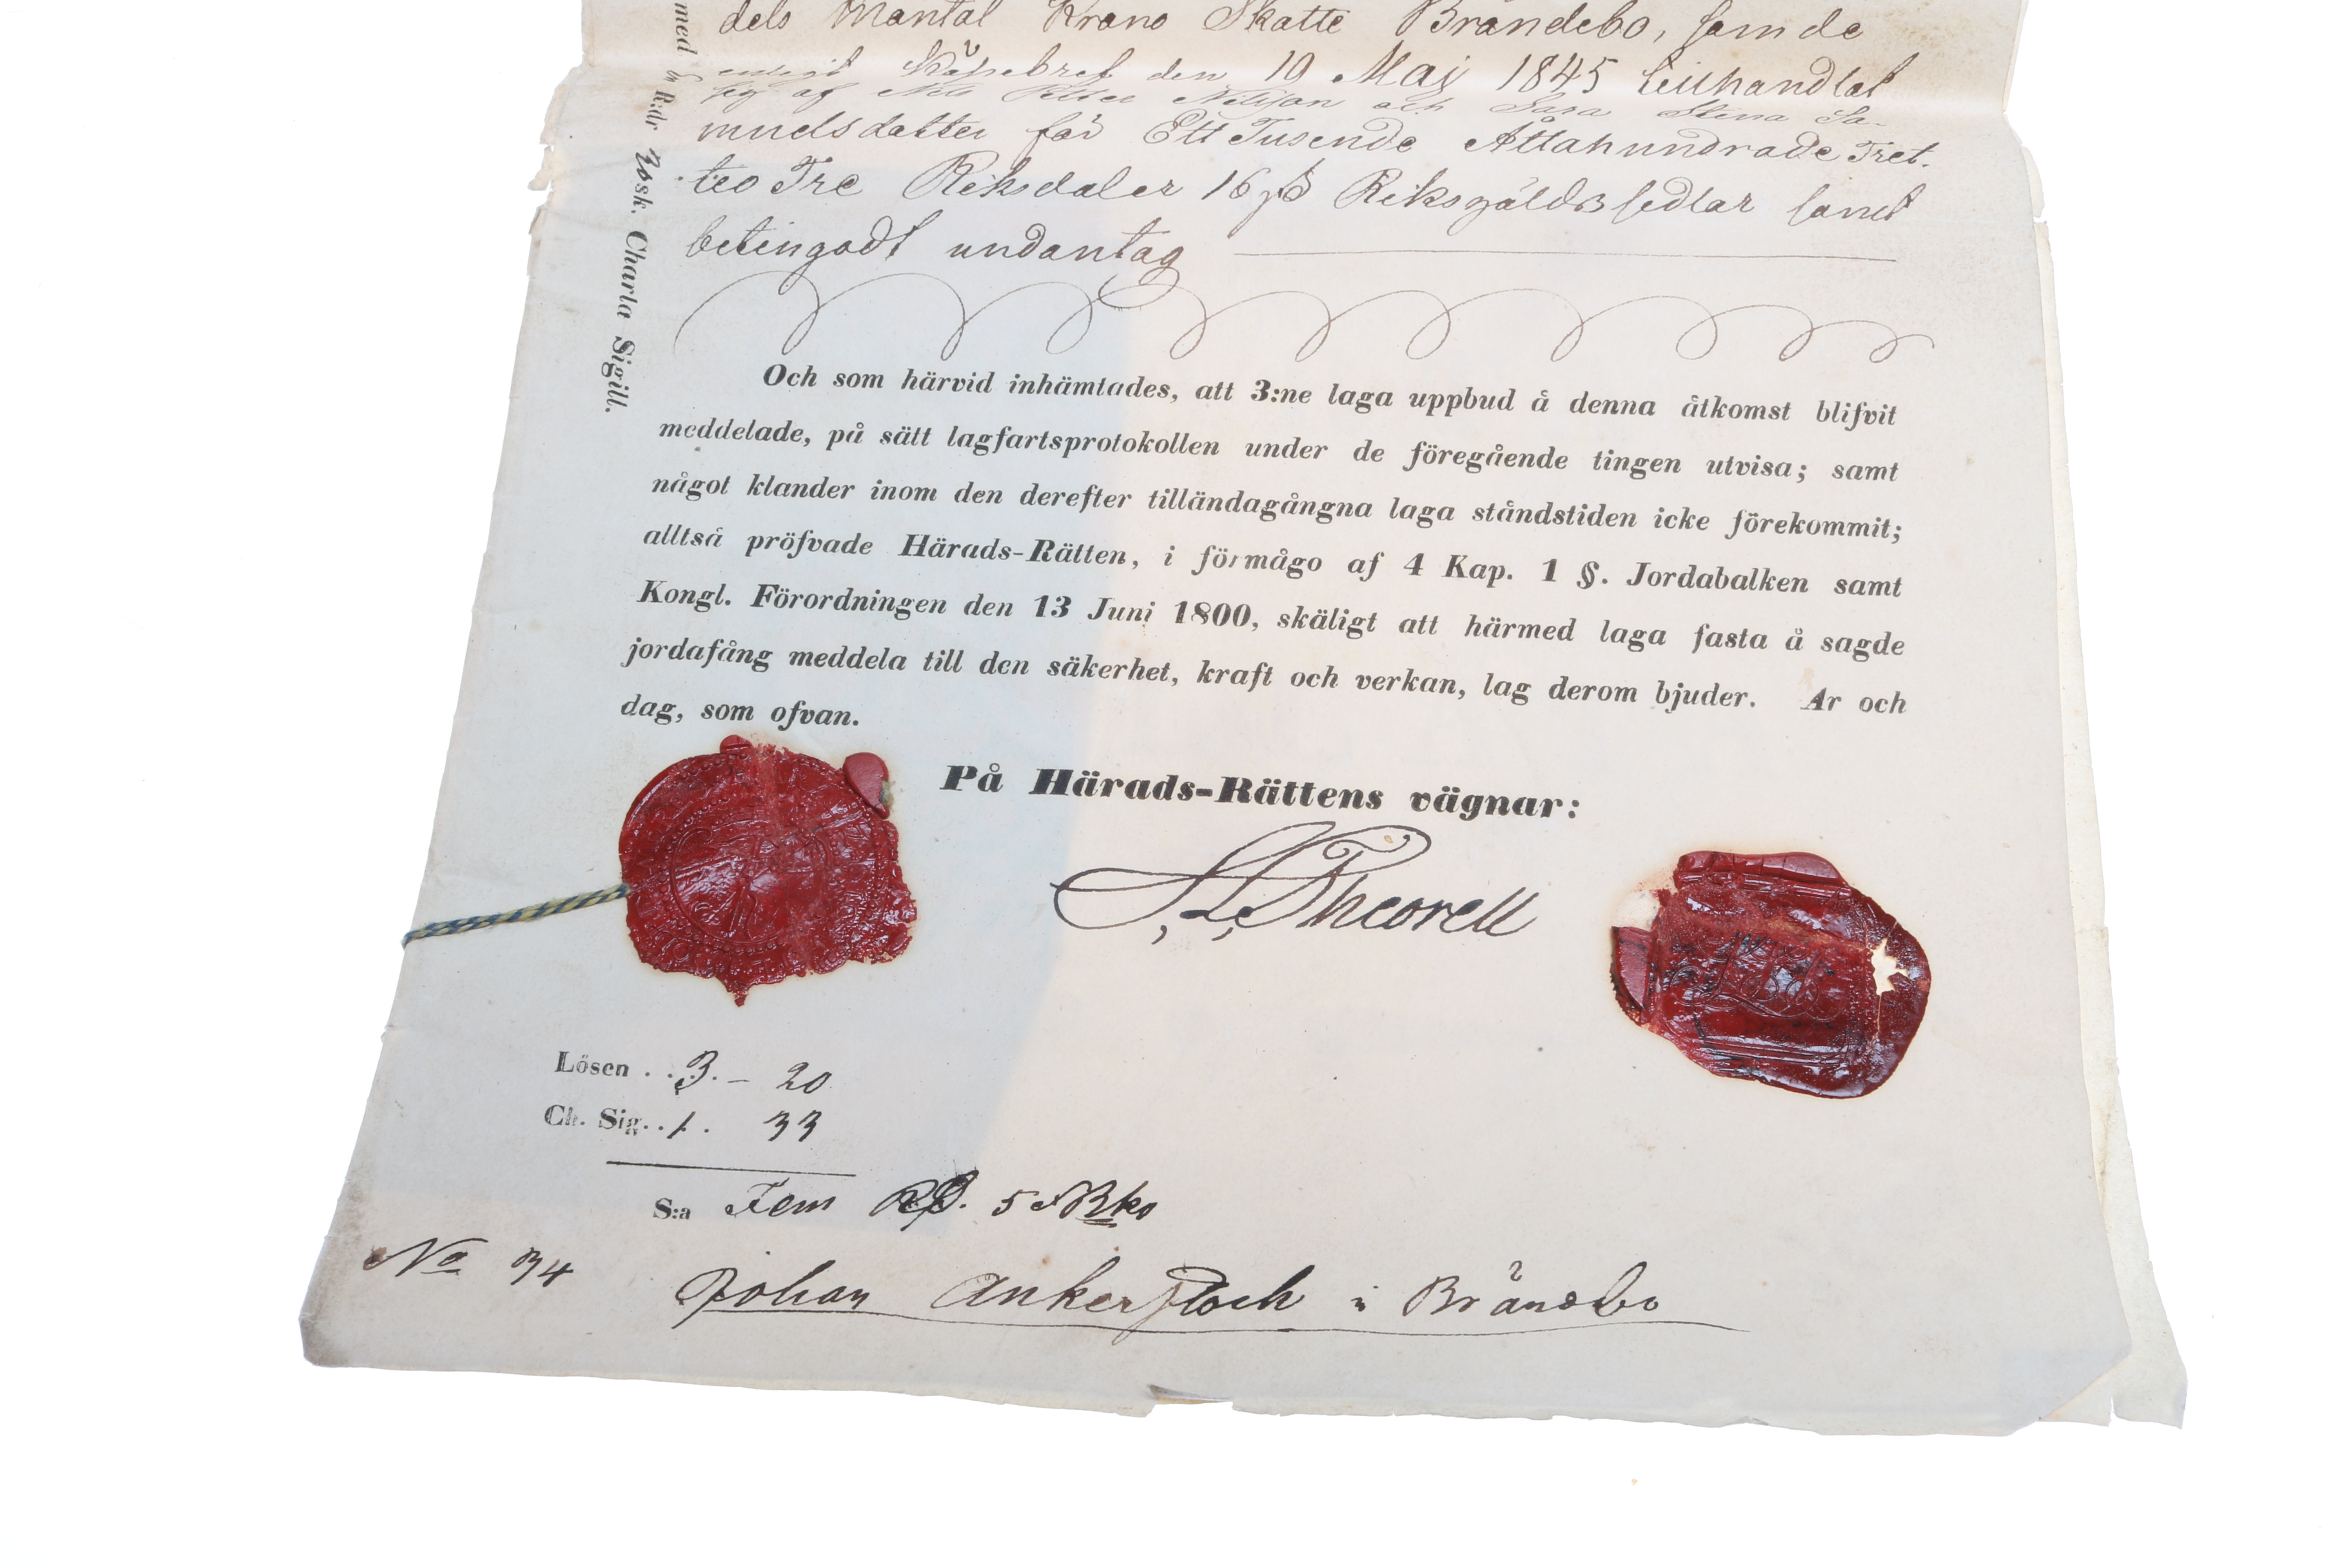 dels Mantal Krono Skatte Brändebo, som de
enligt Köpebref den 10 Maj 1845 tillhandlat
sig af Nils Petter Nilsson och Sara Stena Sa-
muelsdotter för Ett Tusende Åttahundrade Tret-
tio Tre Riksdaler 16 sk Riksgäldssedlar samt
betingadt undantag
med R:dr sk. Charta Sigill.
Och som härvid inhämtades, att 3:ne laga uppbud å denna åtkomst blifvit
meddelade, på sätt lagfartsprotokollen under de föregående tingen utvisa; samt
något klander inom den derefter tilländagångna laga ståndstiden icke förekommit;
alltså pröfvade Härads-Rätten, i förmågo af 4 Kap. 1 §. Jordabalken samt
Kongl. Förordningen den 13 Juni 1800, skäligt att härmed laga fasta å sagde
jordafång meddela till den säkerhet, kraft och verkan, lag derom bjuder. Ar och
dag, som ofvan.
På Härads-Rättens vägnar:
S. L. Theorell
Lösen . . 3. – 20
Ch. Sig. . 1. 33
S:a Fem RD. 5 s Bko
No 34 Johan Ankerstock i Brändebo